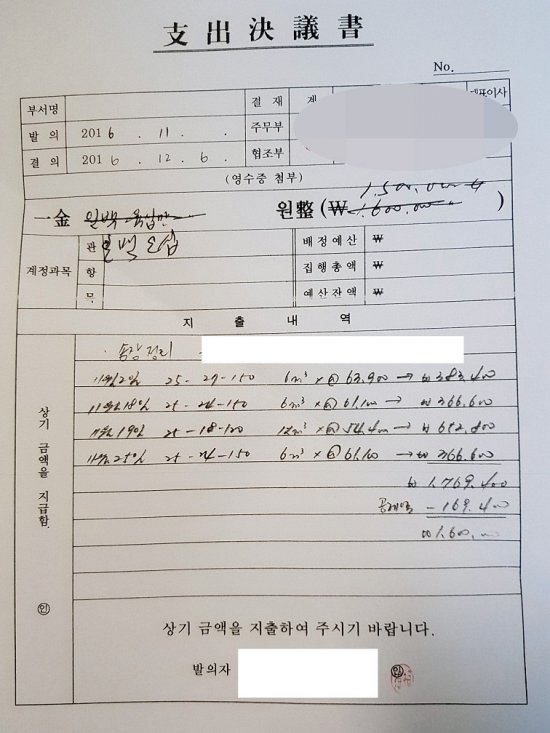 支出決議書
No.
부서명 결재 계 대표이사
발의 2016 . 11 . . 주무부
결의 2016 . 12 . 6 . 협조부
(영수증 첨부)
1,500,000
一金 일백육십만 원整 (₩ 1,600,000 )
일백오십
계정과목 관 배정예산 ₩
항 집행총액 ₩
목 예산잔액 ₩
지출내역
정리
11월 2일 25-27-150 6m³ × @63,900 → ₩383,400
11월 18일 25-24-150 6m³ × @61,100 → ₩366,600
11월 19일 25-18-120 12m³ × @54,400 → ₩652,800
11월 25일 25-24-150 6m³ × @61,100 → ₩366,600
₩1,769,400
-169,400
₩1,600,000
상기 금액을 지급함.
印
상기 금액을 지출하여 주시기 바랍니다.
발의자 印